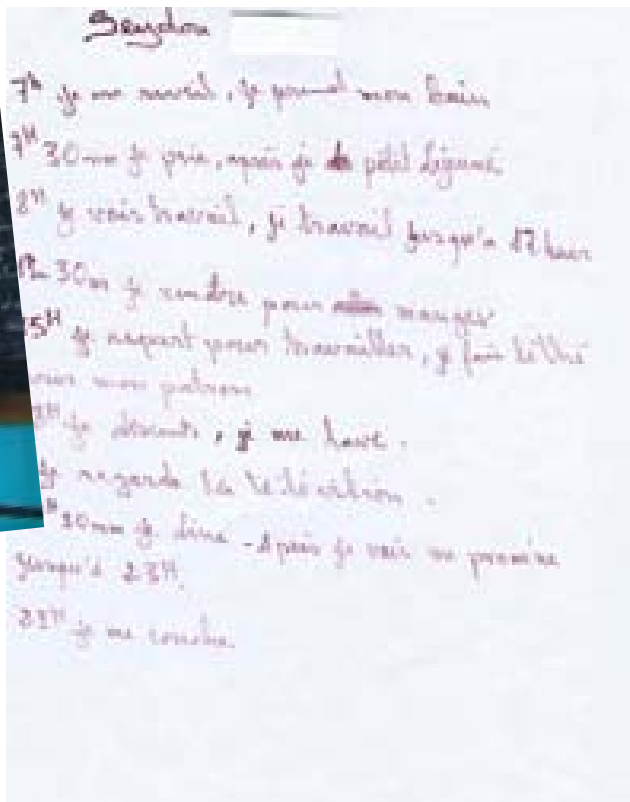 7h je me reveil, je prend mon bain
7H 30mn je prie, après je petit
8H je vais travail, je travail jusqu'a 12 heur
30m je rendre pour manger
15H je repart pour travailler, je fais le thé
mon patron
je descents, je me lave.
Je regarde la
30mn je dine - Après je vais me promène
jusqu'à 23H.
23H je me couche